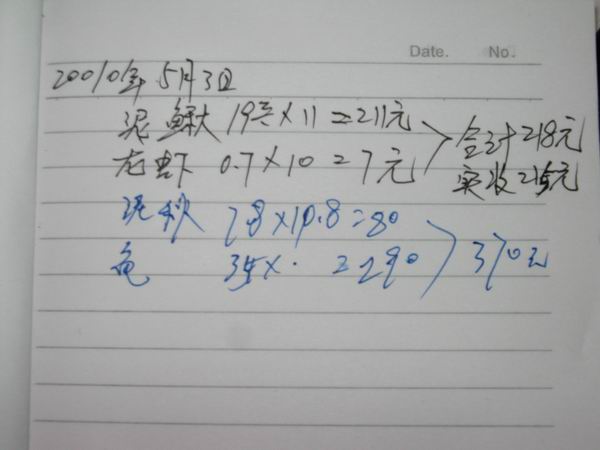 Date. No.
20010年5月3日
泥鳅 19.2×11=211元
龙虾 0.7×10=7元
合计218元
实收215元
泥秋 7.8×10.8=80
龟 35× · =290
370元